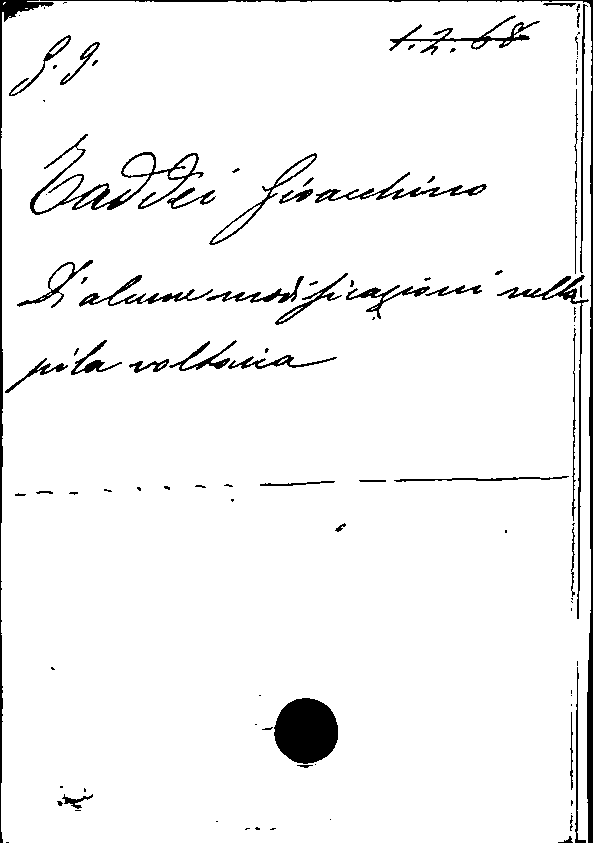 G. g.
1.2.68
Taddei Gioacchino
Di alune modificazioni nella
pila voltaica